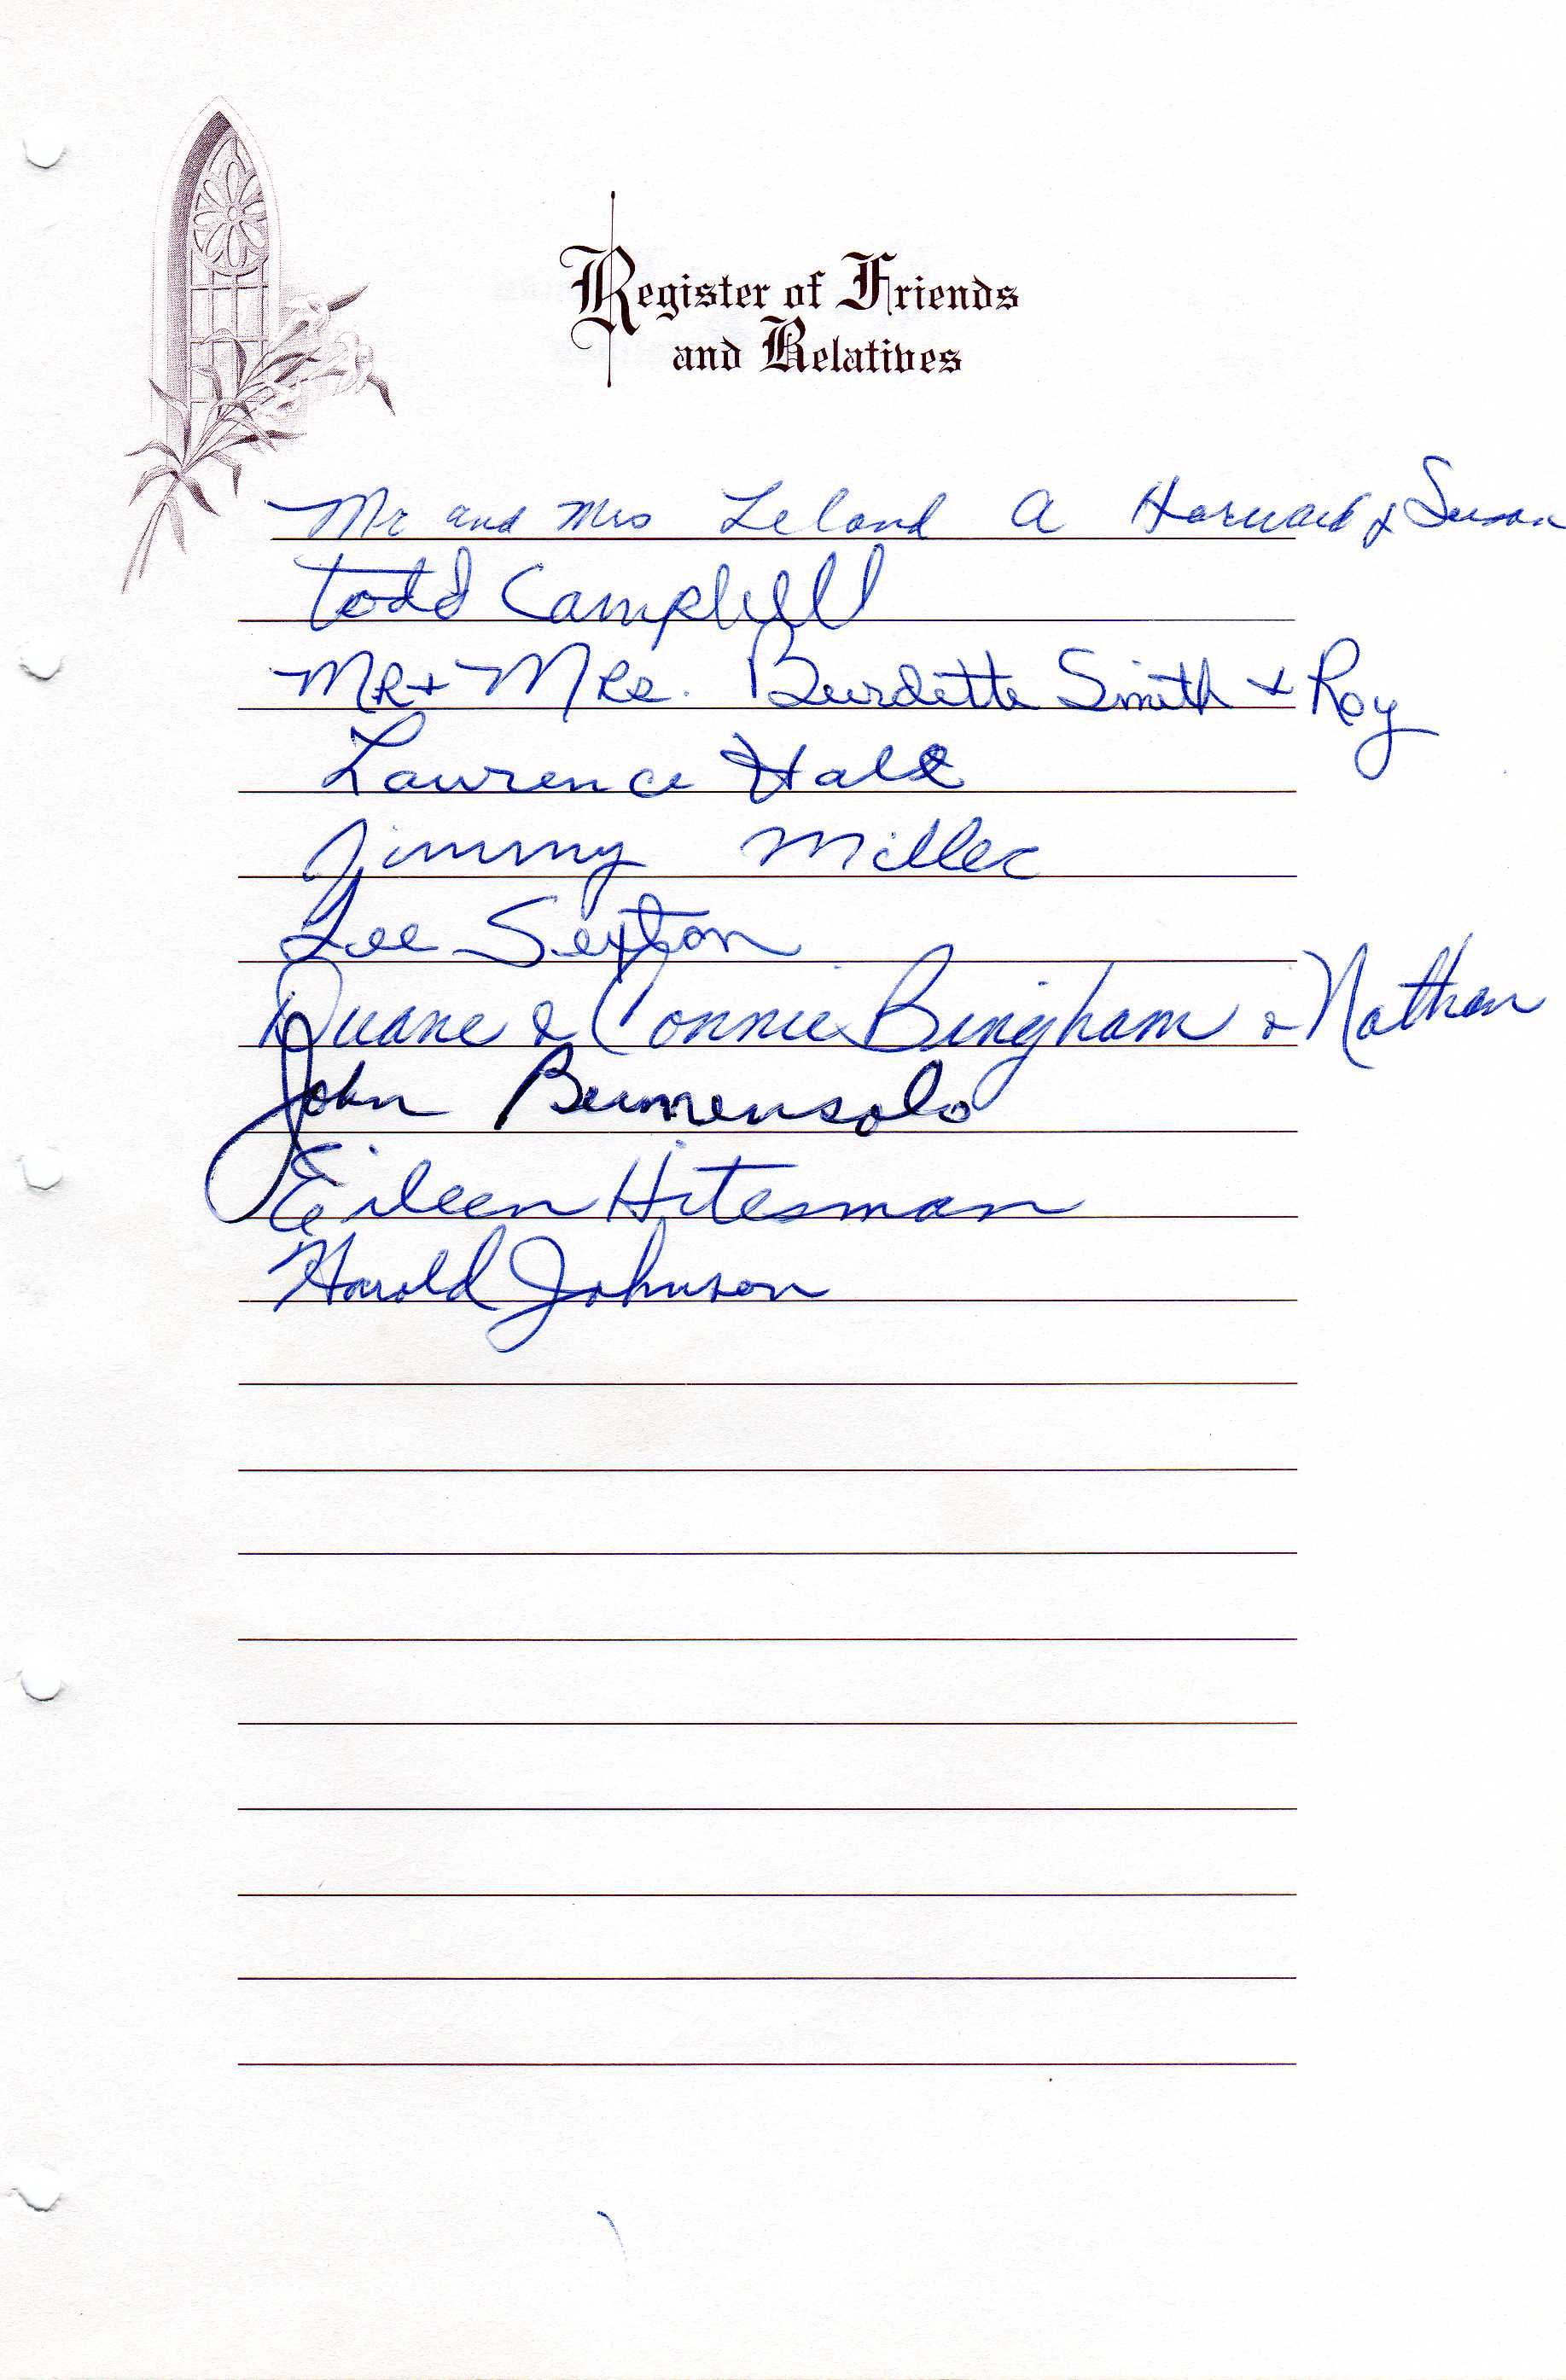 Register of Friends
and Relatives
Mr and Mrs Leland A Harward & Susan
Todd Campbell
MR + MRs. Burdette Smith + Roy
Lawrence Hale
Jimmy Miller
Lee Sexton
Duane & Connie Bingham & Nathan
John
Eileen Hitesman
Harold Johnson